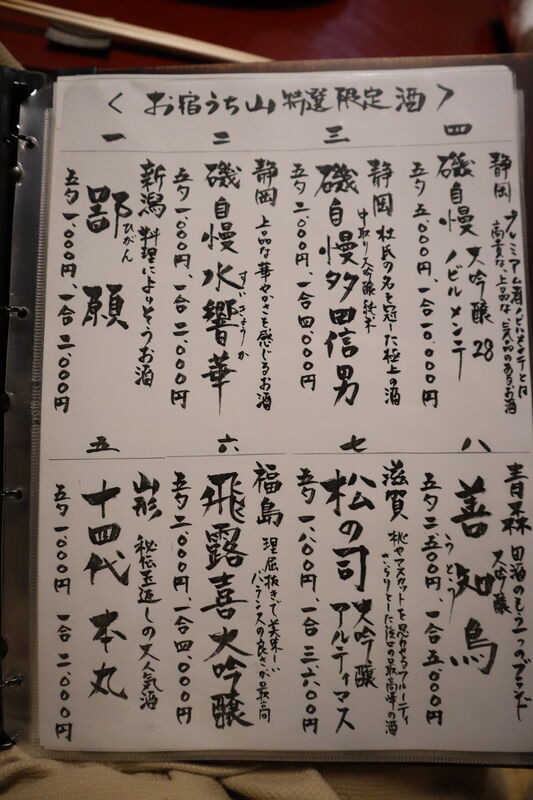 〈お宿うち山 特選限定酒〉
一
新潟 料理によりそうお酒
鄙願
ひがん
五勺 一、〇〇〇円、一合 二、〇〇〇円
二
静岡 上品な華やかさを感じるお酒
磯自慢 水響華
すいきょうか
五勺 一、〇〇〇円、一合 二、〇〇〇円
三
静岡 杜氏の名を冠した極上の酒
中取り大吟醸純米
磯自慢 多田信男
五勺 二、〇〇〇円、一合 四、〇〇〇円
四
静岡 プレミアム酒ノビルメンテとは
高貴な、上品な、気品のあるお酒
磯自慢 大吟醸28
ノビルメンテ
五勺 五、〇〇〇円、一合 一〇、〇〇〇円
五
山形 秘伝玉返しの大人気酒
十四代 本丸
五勺 一、〇〇〇円 一合 二、〇〇〇円
六
福島 理屈抜きで美味しい
バランスの良さが最高
飛露喜大吟醸
五勺 二、〇〇〇円、一合 四、〇〇〇円
七
滋賀 桃やマスカットを思わせるフルーティ
さらりとした後口の最高峰の酒
松の司 大吟醸
アルティマス
五勺 一、八〇〇円 一合 三、六〇〇円
八
青森 田酒のもう一つのブランド
大吟醸
善知鳥
うとう
五勺 二、五〇〇円、一合 五、〇〇〇円